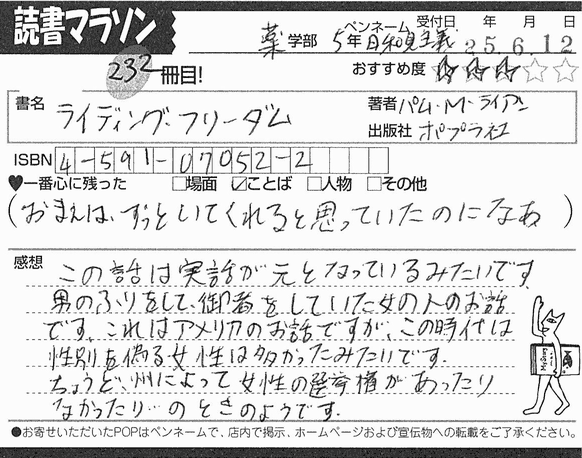 読書マラソン
232冊目!
薬学部 5年 ペンネーム 日和見主義 受付日 25年6月12日
おすすめ度 ★★★☆☆
書名 ライディング・フリーダム
著者 パム・M・ライアン
出版社 ポプラ社
ISBN 4-591-07052-2
♥一番心に残った □場面 ☑ことば □人物 □その他
(おまえは、ずっといてくれると思っていたのになあ)
感想
この話は実話が元となっているみたいです
男のふりをして、御者をしていた女の人のお話
です。これはアメリカのお話ですが、この時代は
性別を偽る女性は多かったみたいです.
ちょうど、州によって女性の選挙権があったり
なかったり…のときのようです.
●お寄せいただいたPOPはペンネームで、店内で掲示、ホームページおよび宣伝物への転載をご了承ください。